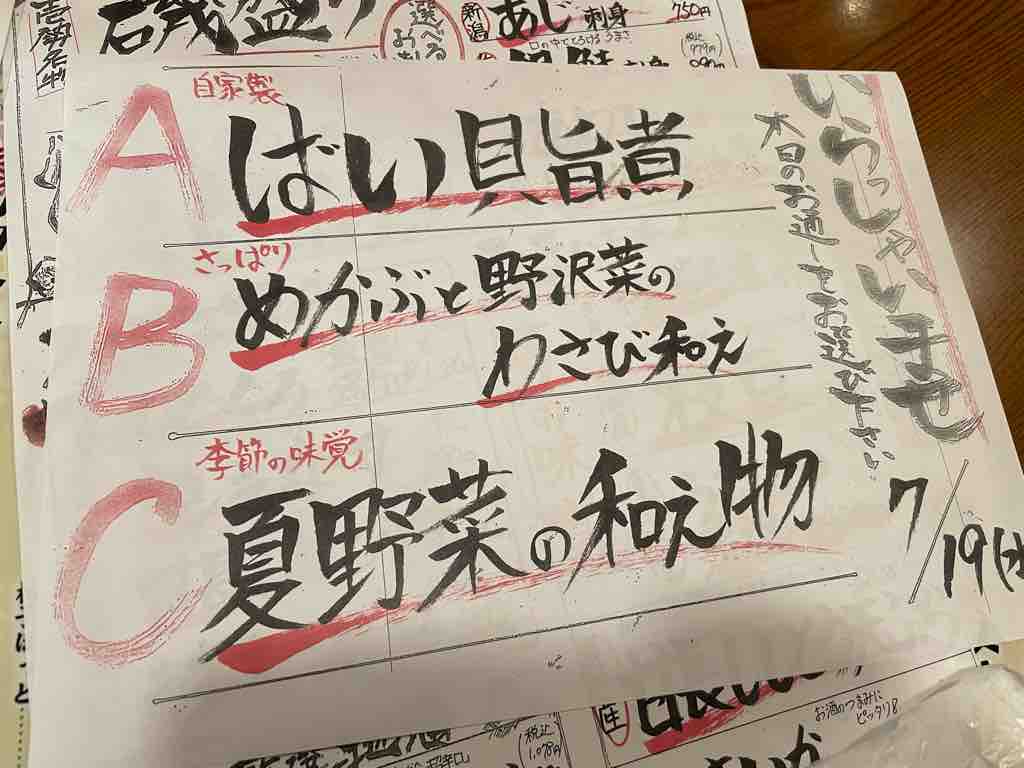 磯盛り
選べる
新潟
あじ刺身
750円
口の中でとろけるうまさ
いらっしゃいませ
本日のお通しをお選び下さい
7/19(水
A
自家製
ばい貝旨煮
B
さっぱり
めかぶと野沢菜の
わさび和え
C
季節の味覚
夏野菜の和え物
税込
1,078円
超辛口
お酒のつまみに
ピッタリ!!